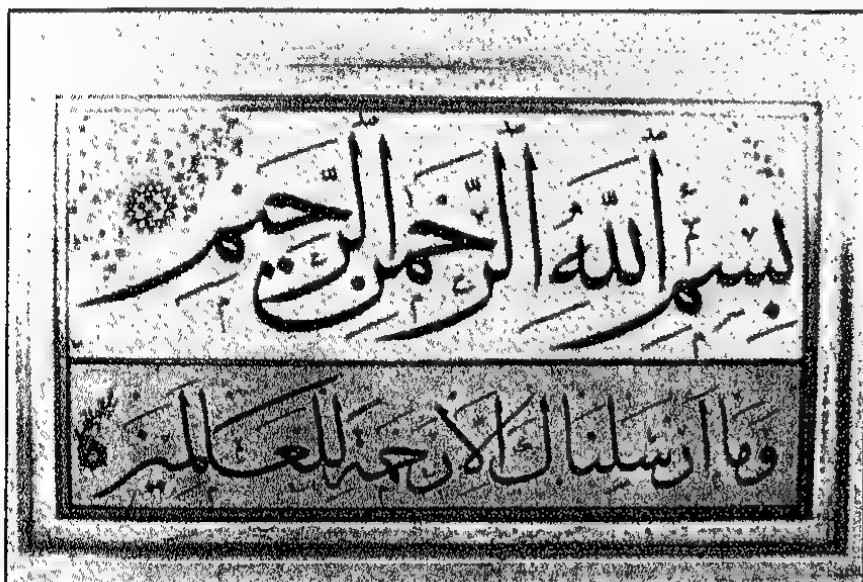 بِسْمِ اللَّهِ الرَّحْمَنِ الرَّحِيمِ
وَمَا أَرْسَلْنَاكَ إِلَّا رَحْمَةً لِلْعَالَمِينَ